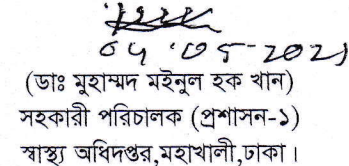 04.05-2021
(ডাঃ মুহাম্মদ মইনুল হক খান)
সহকারী পরিচালক (প্রশাসন-১)
স্বাস্থ্য অধিদপ্তর,মহাখালী,ঢাকা।